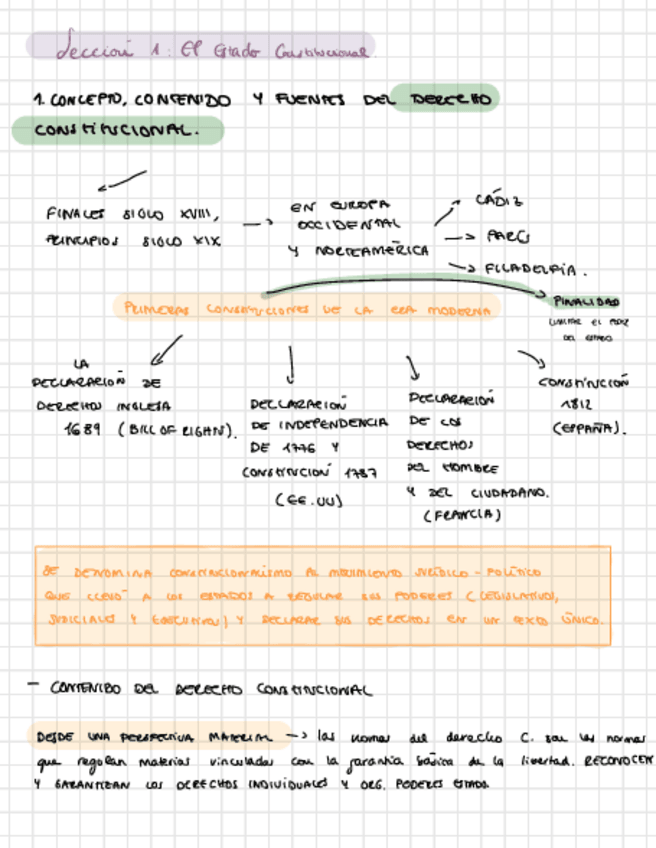 Sección 1: El Estado Constitucional.
1. CONCEPTO, CONTENIDO Y FUENTES DEL DERECHO
CONSTITUCIONAL.
FINALES SIGLO XVIII,
PRINCIPIOS SIGLO XIX
EN EUROPA
OCCIDENTAL
Y NORTEAMÉRICA
CÁDIZ
PARÍS
FILADELFIA.
PRIMERAS CONSTITUCIONES DE LA ERA MODERNA
FINALIDAD
LIMITAR EL PODER
DEL ESTADO
LA
DECLARACIÓN DE
DERECHOS INGLESA
1689 (BILL OF RIGHTS).
DECLARACIÓN
DE INDEPENDENCIA
DE 1776 Y
CONSTITUCIÓN 1787
(EE.UU)
DECLARACIÓN
DE LOS
DERECHOS
DEL HOMBRE
Y DEL CIUDADANO.
(FRANCIA)
CONSTITUCIÓN
1812
(ESPAÑA).
SE DENOMINA CONSTITUCIONALISMO AL MOVIMIENTO JURÍDICO - POLÍTICO
QUE LLEVÓ A LOS ESTADOS A REGULAR SUS PODERES (LEGISLATIVOS,
JUDICIALES Y EJECUTIVOS) Y DECLARAR SUS DERECHOS EN UN TEXTO ÚNICO.
- CONTENIDO DEL DERECHO CONSTITUCIONAL
DESDE UNA PERSPECTIVA MATERIAL -> las normas del derecho C. son las normas
que regulan materias vinculadas con la garantía básica de la libertad. RECONOCEN
Y GARANTIZAN LOS DERECHOS INDIVIDUALES Y ORG. PODERES ESTADO.